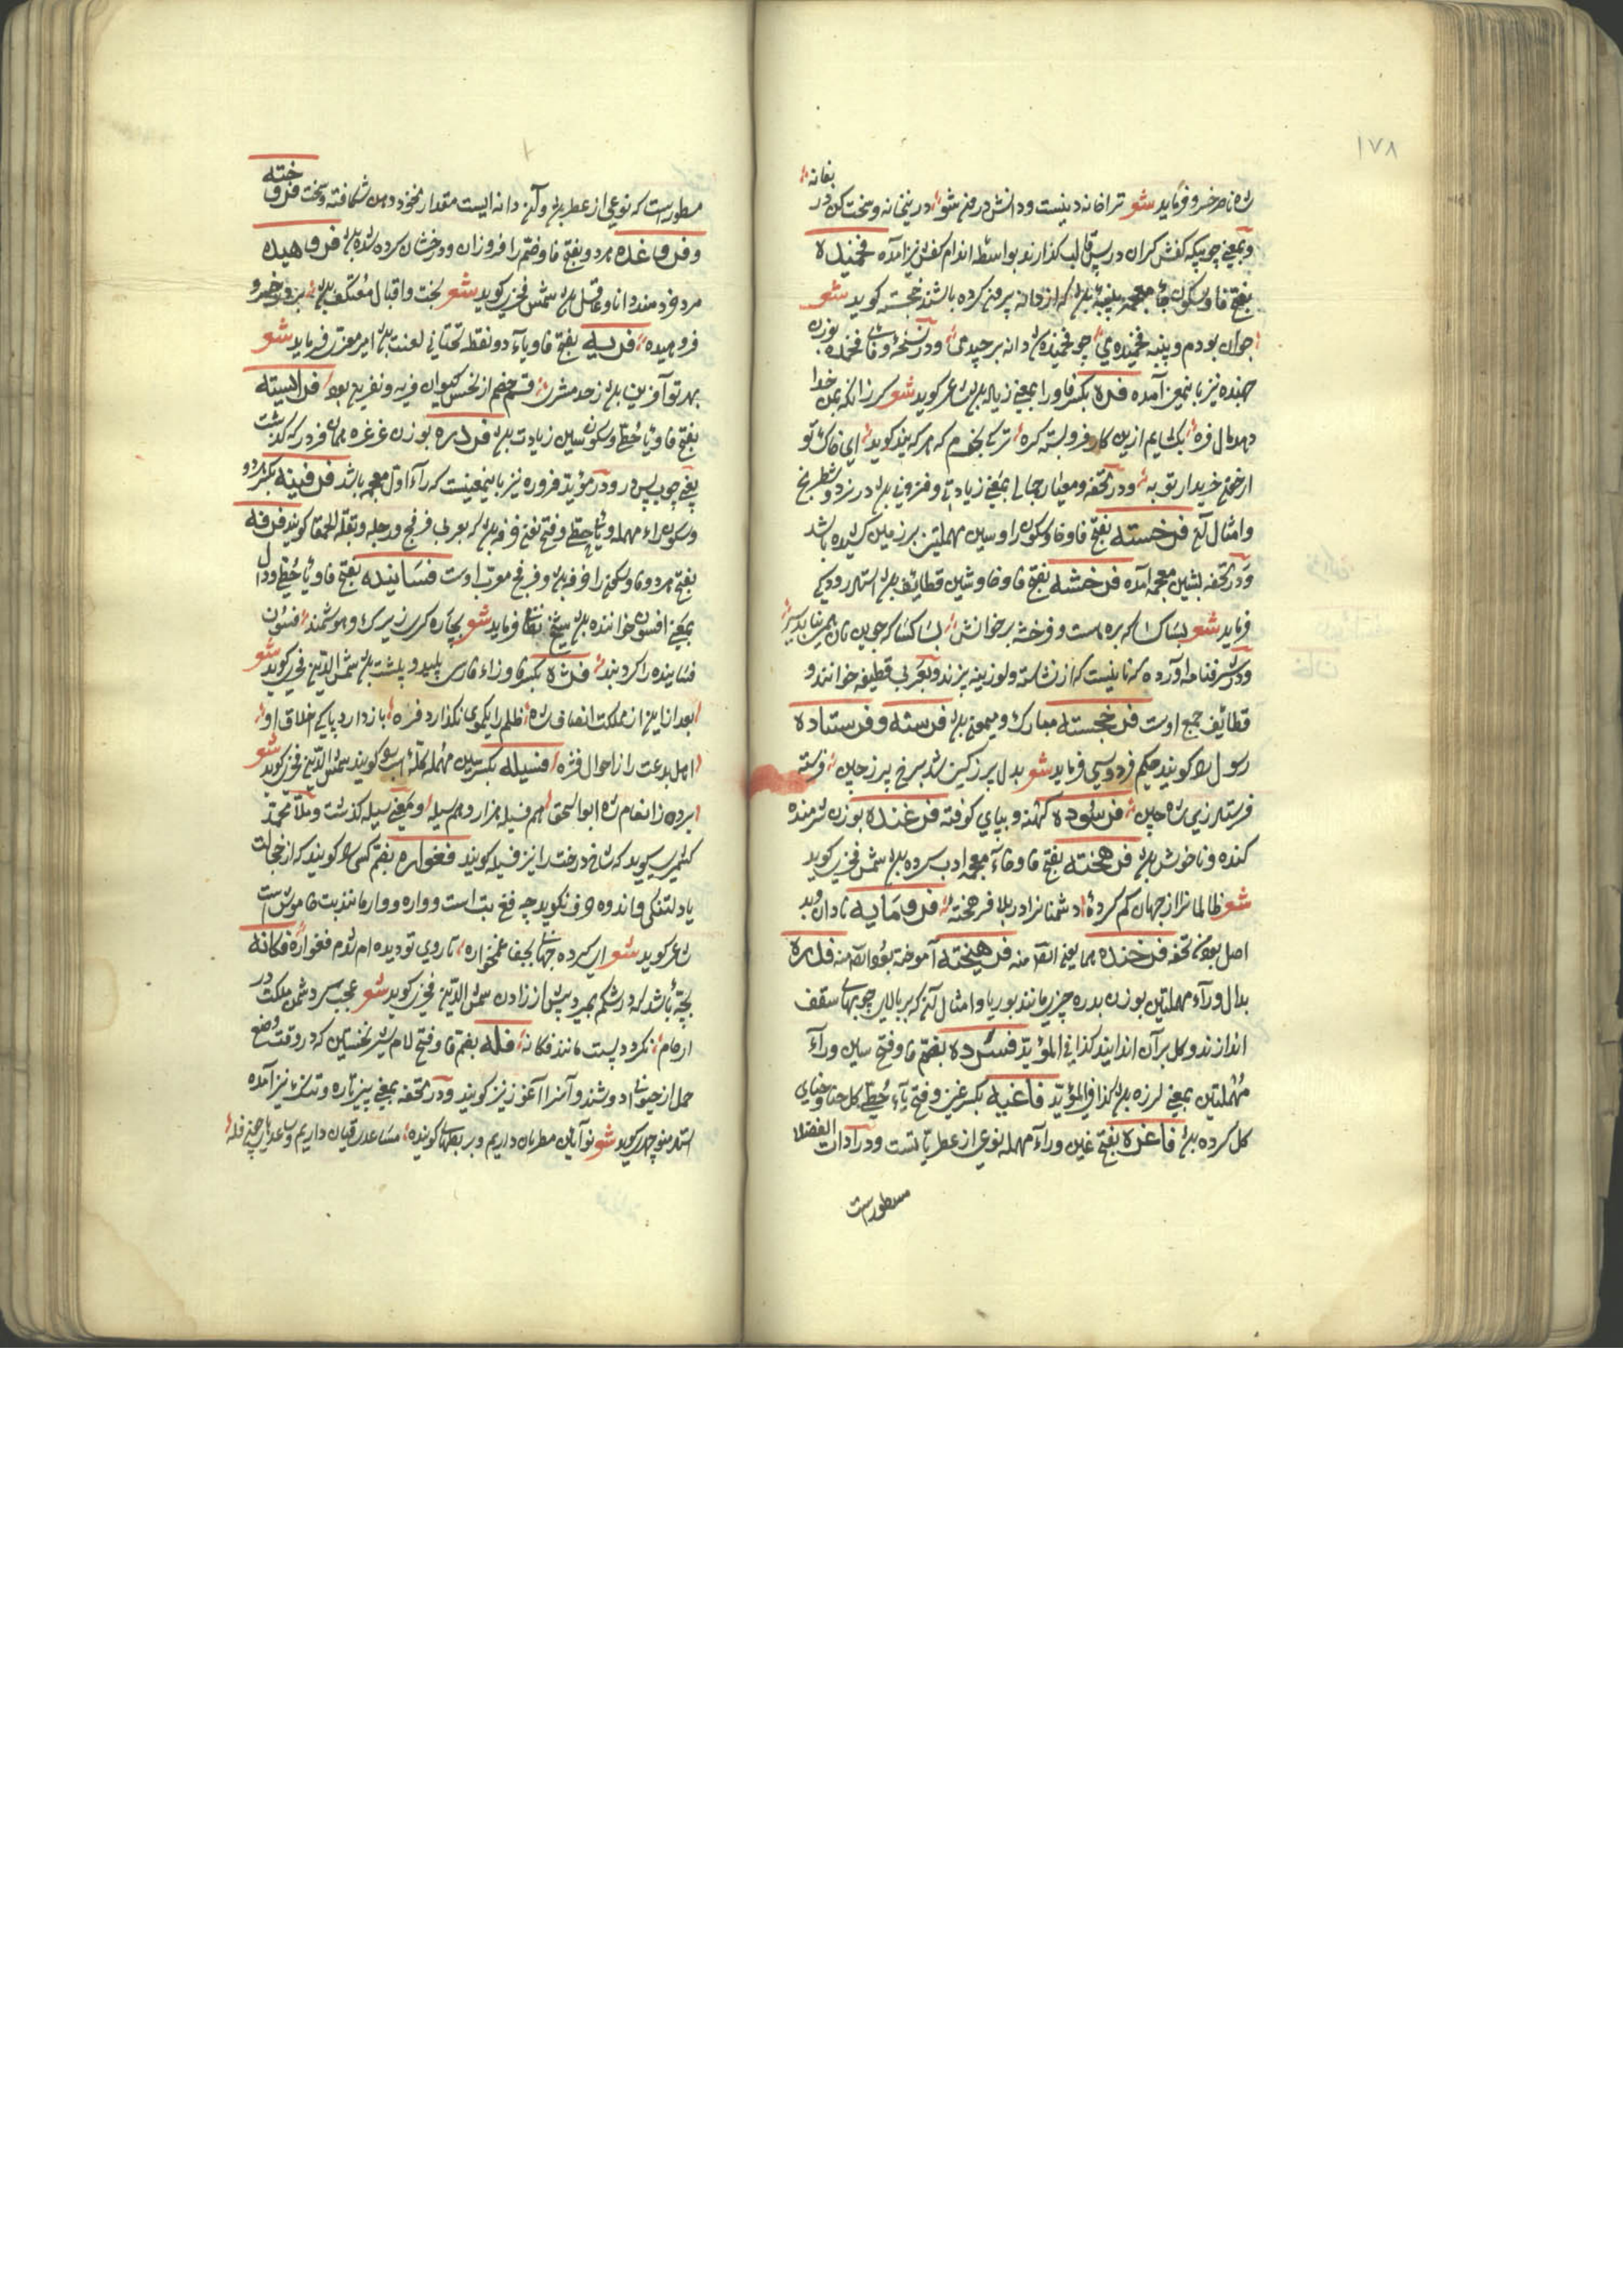 ۱۷۸
بفانه
شاه ناصر خسرو فرماید شعر ترا خانه دینست و دانش درون شو در ینخانه و سخت کن در
و بمعنی چوبیکه کفش کران در پس قالب کذارند بواسطه اندام کفش نیز آمده فخمیده
بفتح فا و سکون خاء معجمه پنبه باشد که از دانه بیرون کرده باشند خجسته کوید شعر
جوان بودم و پنبه فخمیدی چو فخمیده شد دانه برچیدی و در نسخهٔ وفائی فخنده بوزن
جهنده نیز باینمعنی آمده فره بکسر فا و را بمعنی زیاده باشد شاعر کوید شعر کر زانکه بمن خدا
دهد مال فره بکشایم ازین کار فروبسته کره ترکی بخرم که هر که بیند کوید ای خاک تو
از خون خریدار تو به و در تحفه و معیار جمالی بمعنی زیادتی و فزونی باشد در نرد و شطرنج
و امثال آن فرخسته بفتح فا و خا و سکون را و سین مهملتین بر زمین کشیده باشد
و در تحفه بشین معجمه آمده فرخشه بفتح فا و خا و شین قطائف باشد استاد رودکی
فرماید شعر بسا کسا که بره است و فرخشه بر خوانش بسا کسا که جوین نان همی نیابد سیر
و در شرفنامه آورده که نانیست که از نشاسته و لوزینه پزند و بعربی قطیفه خوانند و
قطائف جمع اوست فرخجسته مبارک و میمون باشد فرسته و فرستاده
رسول را کویند حکیم فردوسی فرماید شعر بدل پر ز کین شد برخ پر ز چین فرسته
فرستاد زی شاه چین فرسوده کهنه و بپای کوفته فرغنده بوزن شرمنده
کنده و ناخوش باشد فرهخته بفتح فا و خاء معجمه ادب کرده باشد شمس فخری کوید
شعر ظالمانرا از جهان کم کرده دشمنانرا در بلا فرهخته فرومایه نادان و بد
اصل بود تحفه فرخنده همایون انقا منه فرهیخته آموخته بود ایضا منه فدره
بدال و راء مهملتین بوزن بدره چیزی مانند بوریا و امثال آن که بر بالای چوبهای سقف
اندازند و کل بر آن اندایند کذا فی المؤید فسرده بفتح فا و فتح سین و راء
مهملتین بمعنی لرزه باشد کذا فی المؤید فاغیه بکسر غین و فتح یاء حطی کل حنا و حنای
کل کرده باشد فاغره بفتح غین و راء مهمله نوعی از عطریاتست و در ادات الفضلا
مسطورست
مسطور است که نوعی از عطر باشد و آن دانه ایست مقدار نخود دهن شکافته و سخت فروخته
و فروغده هر دو بفتح فا و ضم را فروزان و درخشان کرده شده باشد فروهیده
مرد خردمند دانا و عاقل باشد شمس فخری کوید شعر بخت و اقبال معتکف باشد بر در خسرو
فروهیده فریه بفتح فا و یاء دو نقطه تحتانی لعنت باشد امیر معزی فرماید شعر
بهر تو آفرین باشد ز حد مشرق قسم خصم از نحس کیوان فریه و نفرین بود فراسیته
بفتح فا و یاء حطی و سکون سین زیادت باشد فردره بوزن غرغره همان فردر که کذشت
یعنی چوب پس در و در مؤید فروره نیز باینمعنیست که راء اول معجمه باشد فرفینه بکسر دو
و سکون راء مهمله و یاء حطی و فتح نون خرفه باشد که بعربی فرفخ و رجله و بقلة الحمقا کویند فرفه
بفتح هر دو فا و سکون را خرفه باشد و فرفخ معرب اوست فساینده بفتح فا و یاء حطی و دال
بمعنی افسون خواننده باشد شیخ نظامی فرماید شعر بچاره کری زیرک و هوشمند فسون
فساینده را کرد بند فژه بکسر فا و زاء فارسی پلید و پلشت باشد شمس الدین فخری کوید شعر
بعد ازین از مملکت انصاف شاه ظلم را یکموی نکذارد فژه باز دارد پاکی اخلاق او
اهل بدعت را ز احوال فژه فسیله بکسر سین مهمله کلهٔ اسب کویند شمس الدین فخری کوید شعر
برده ز انعام شاه ابو اسحق هم فسیله هزار و هم سیله و بمعنی سیله کذشت و ملا محمد
کشمیری میکوید که شاخ درخت را نیز فسیله کویند فغواره بفتح کسی را کویند که از خجالت
یا دلتنکی و اندوه حرف نکوید چه فغ بت است و واره و وار مانند یعنی بت خاموش است
شاعر کوید شعر ای کرده جهانی بجفا غمخواره تا روی تو دیده ام شدم فغواره فکانه
بچهٔ باشد که در شکم بمیرد پیش از زادن شمس الدین فخری کوید شعر عجب مرد دشمن ملکت در
ارحام نکردد پست مانند فکانه فله بفتح فا و فتح لام شیر نخستین که در وقت وضع
حمل از حیوان دوشند و آنرا آغوز نیز کویند و در تحفه بمعنی پنیر تازه و تنک نیز آمده
استاد منوچهری کوید شعر نوآئین مطربان داریم و بربطهای کوینده مساعد ساقیان داریم و ساعدهای چون فله